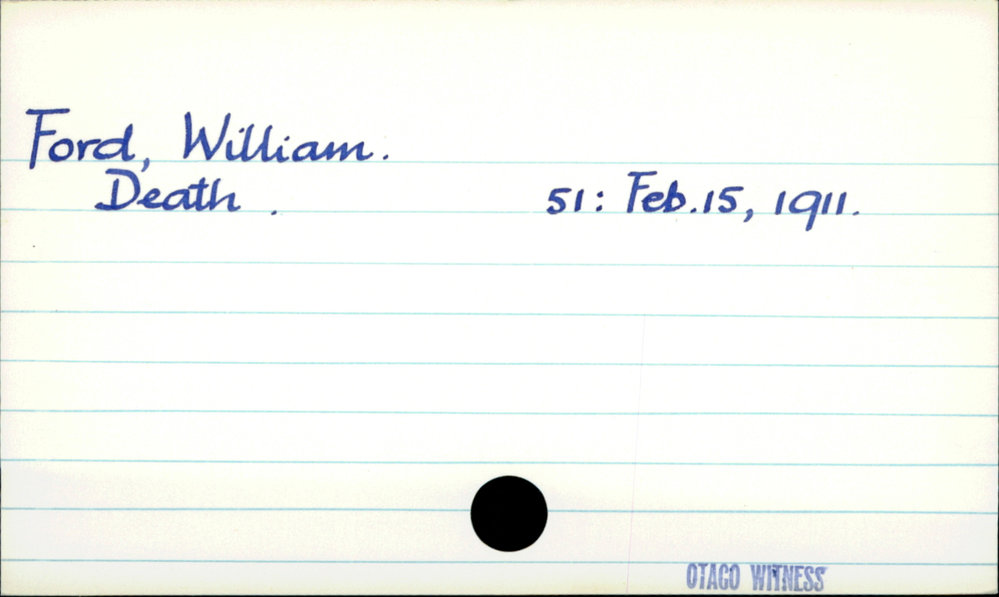 Ford, William.
Death. 51: Feb. 15, 1911.
OTAGO WITNESS